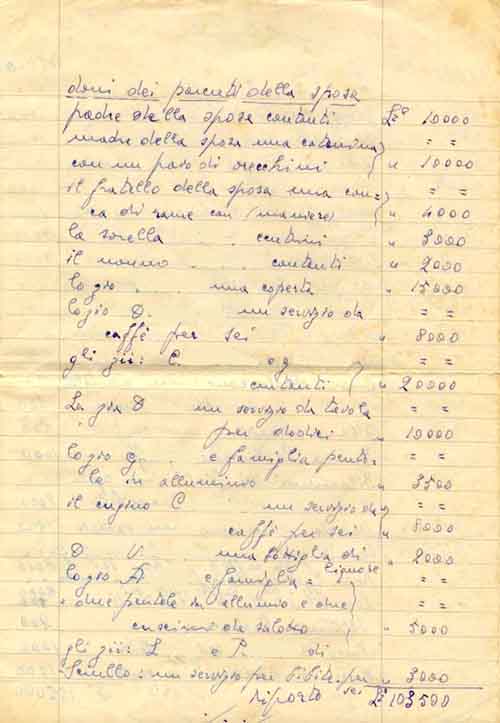 doni dei parenti della sposa
padre della sposa contanti £ 10000
madre della sposa una catenina = =
con un paio di orecchini " 10000
il fratello della sposa una con= = =
ca di rame con (maniere) " 4000
la sorella contanti " 3000
il nonno contanti " 2000
lo zio una coperta " 15000
lo zio D. un servizio da = =
caffè per sei " 8000
gli zii: C. e g = =
contanti " 20000
La zia D un servizio da tavola = =
per dodici " 10000
lo zio g. e famiglia pento= = =
la in alluminio " 3500
il cugino C un servizio da = =
caffè per sei " 8000
D. V. una bottiglia di " 2000
liquore
lo zio A e famiglia = = =
" due pentole in allumio e due = =
cuscini da salotto " 5000
gli zii: L e P. di
un servizio per bibite per " 3000
sei
riporto £ 103500